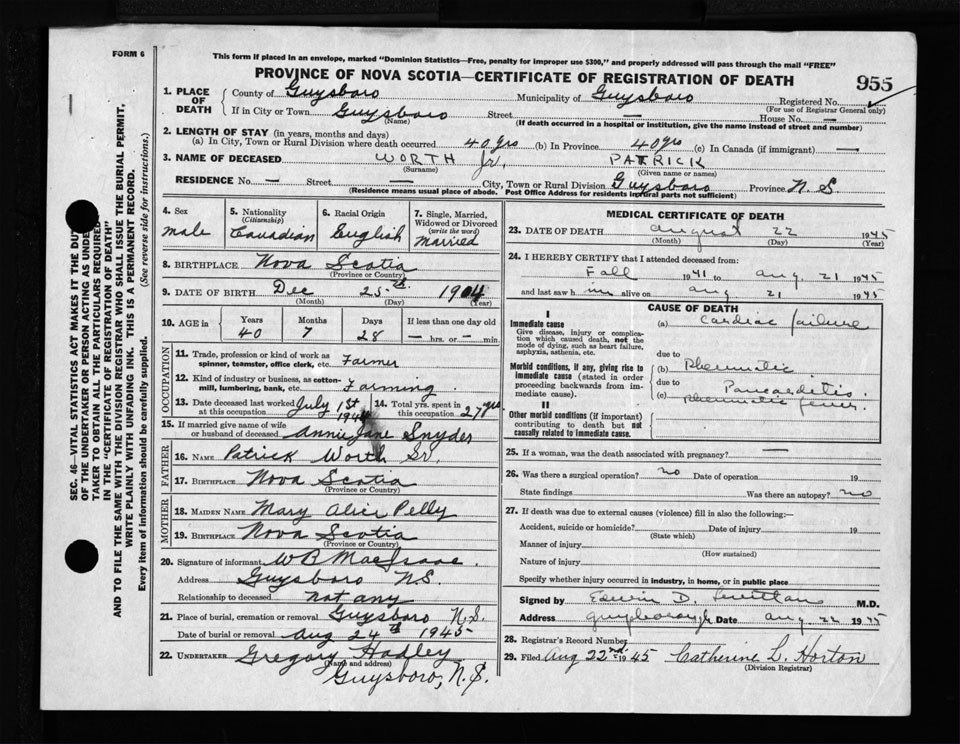 FORM 6
This form if placed in an envelope, marked "Dominion Statistics—Free, penalty for improper use $300," and properly addressed will pass through the mail "FREE"
PROVINCE OF NOVA SCOTIA—CERTIFICATE OF REGISTRATION OF DEATH
955
1. PLACE OF DEATH
County of Guysboro Municipality of Guysboro Registered No.
(For use of Registrar General only)
If in City or Town Guysboro Street — House No. —
(Name) (If death occurred in a hospital or institution, give the name instead of street and number)
2. LENGTH OF STAY (in years, months and days)
(a) In City, Town or Rural Division where death occurred 40 yrs (b) In Province 40 yrs (c) In Canada (if immigrant) —
3. NAME OF DECEASED WORTH Jr. PATRICK
(Surname) (Given name or names)
RESIDENCE No. — Street — City, Town or Rural Division Guysboro Province N.S.
(Residence means usual place of abode. Post Office Address for residents in rural parts not sufficient)
4. Sex
Male
5. Nationality
(Citizenship)
Canadian
6. Racial Origin
English
7. Single, Married, Widowed or Divorced
(write the word)
Married
8. BIRTHPLACE Nova Scotia
(Province or Country)
9. DATE OF BIRTH Dec 25th 1904
(Month) (Day) (Year)
10. AGE in Years Months Days If less than one day old
40 7 28 — hrs. or — min.
OCCUPATION
11. Trade, profession or kind of work as spinner, teamster, office clerk, etc. Farmer
12. Kind of industry or business, as cotton-mill, lumbering, bank, etc. Farming
13. Date deceased last worked at this occupation July 1st 1944
14. Total yrs. spent in this occupation 27 yrs
15. If married give name of wife or husband of deceased Annie Jane Snyder
FATHER
16. NAME Patrick Worth Sr.
17. BIRTHPLACE Nova Scotia
(Province or Country)
MOTHER
18. MAIDEN NAME Mary Alice Pelly
19. BIRTHPLACE Nova Scotia
(Province or Country)
20. Signature of informant W B MacIsaac
Address Guysboro N.S.
Relationship to deceased not any
21. Place of burial, cremation or removal Guysboro N.S.
Date of burial or removal Aug 24th 1945
22. UNDERTAKER Gregory Hadley
(Name and address)
Guysboro, N.S.
MEDICAL CERTIFICATE OF DEATH
23. DATE OF DEATH August 22 1945
(Month) (Day) (Year)
24. I HEREBY CERTIFY that I attended deceased from:
Fall 1941 to Aug. 21 1945
and last saw him alive on Aug 21 1945
CAUSE OF DEATH
I
Immediate cause
Give disease, injury or complication which caused death, not the mode of dying, such as heart failure, asphyxia, asthenia, etc.
(a) Cardiac failure
due to
Morbid conditions, if any, giving rise to immediate cause (stated in order proceeding backwards from immediate cause).
(b) Rheumatic Pancarditis
due to
(c) Rheumatic fever
II
Other morbid conditions (if important) contributing to death but not causally related to immediate cause.
25. If a woman, was the death associated with pregnancy? —
26. Was there a surgical operation? no Date of operation 19
State findings Was there an autopsy? no
27. If death was due to external causes (violence) fill in also the following:—
Accident, suicide or homicide? Date of injury 19
(State which)
Manner of injury
(How sustained)
Nature of injury
Specify whether injury occurred in industry, in home, or in public place
Signed by Edwin D. M.D.
Address Guysborough Date Aug 22 1945
28. Registrar's Record Number
29. Filed Aug 22nd 1945 Catherine L. Horton
(Division Registrar)
SEC. 46—VITAL STATISTICS ACT MAKES IT THE DUTY
OF THE UNDERTAKER OR PERSON ACTING AS UNDER-
TAKER TO OBTAIN ALL THE PARTICULARS REQUIRED
IN THE "CERTIFICATE OF REGISTRATION OF DEATH"
AND TO FILE THE SAME WITH THE DIVISION REGISTRAR WHO SHALL ISSUE THE BURIAL PERMIT.
WRITE PLAINLY WITH UNFADING INK. THIS IS A PERMANENT RECORD.
Every item of information should be carefully supplied. (See reverse side for instructions.)